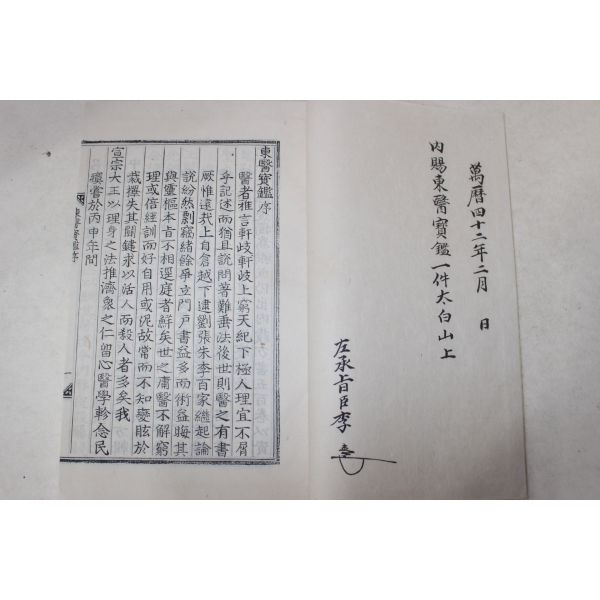 萬曆四十二年二月 日
內賜東醫寶鑑一件太白山上
左承旨臣李
東醫寶鑑序
醫者雅言軒歧軒歧上窮天紀下極人理宜不屑
乎記述而猶且說問著難垂法後世則醫之有書
厥惟遠哉上自倉越下逮劉張朱李百家繼起論
說紛然剽竊緒餘爭立門戶書益多而術益晦其
與靈樞本旨不相逕庭者鮮矣世之庸醫不解窮
理或倍經訓而好自用或泥故常而不知變眩於
裁擇失其關鍵求以活人而殺人者多矣我
宣宗大王以理身之法推濟衆之仁留心醫學軫念民
瘼嘗於丙申年間
東醫寶鑑序
一